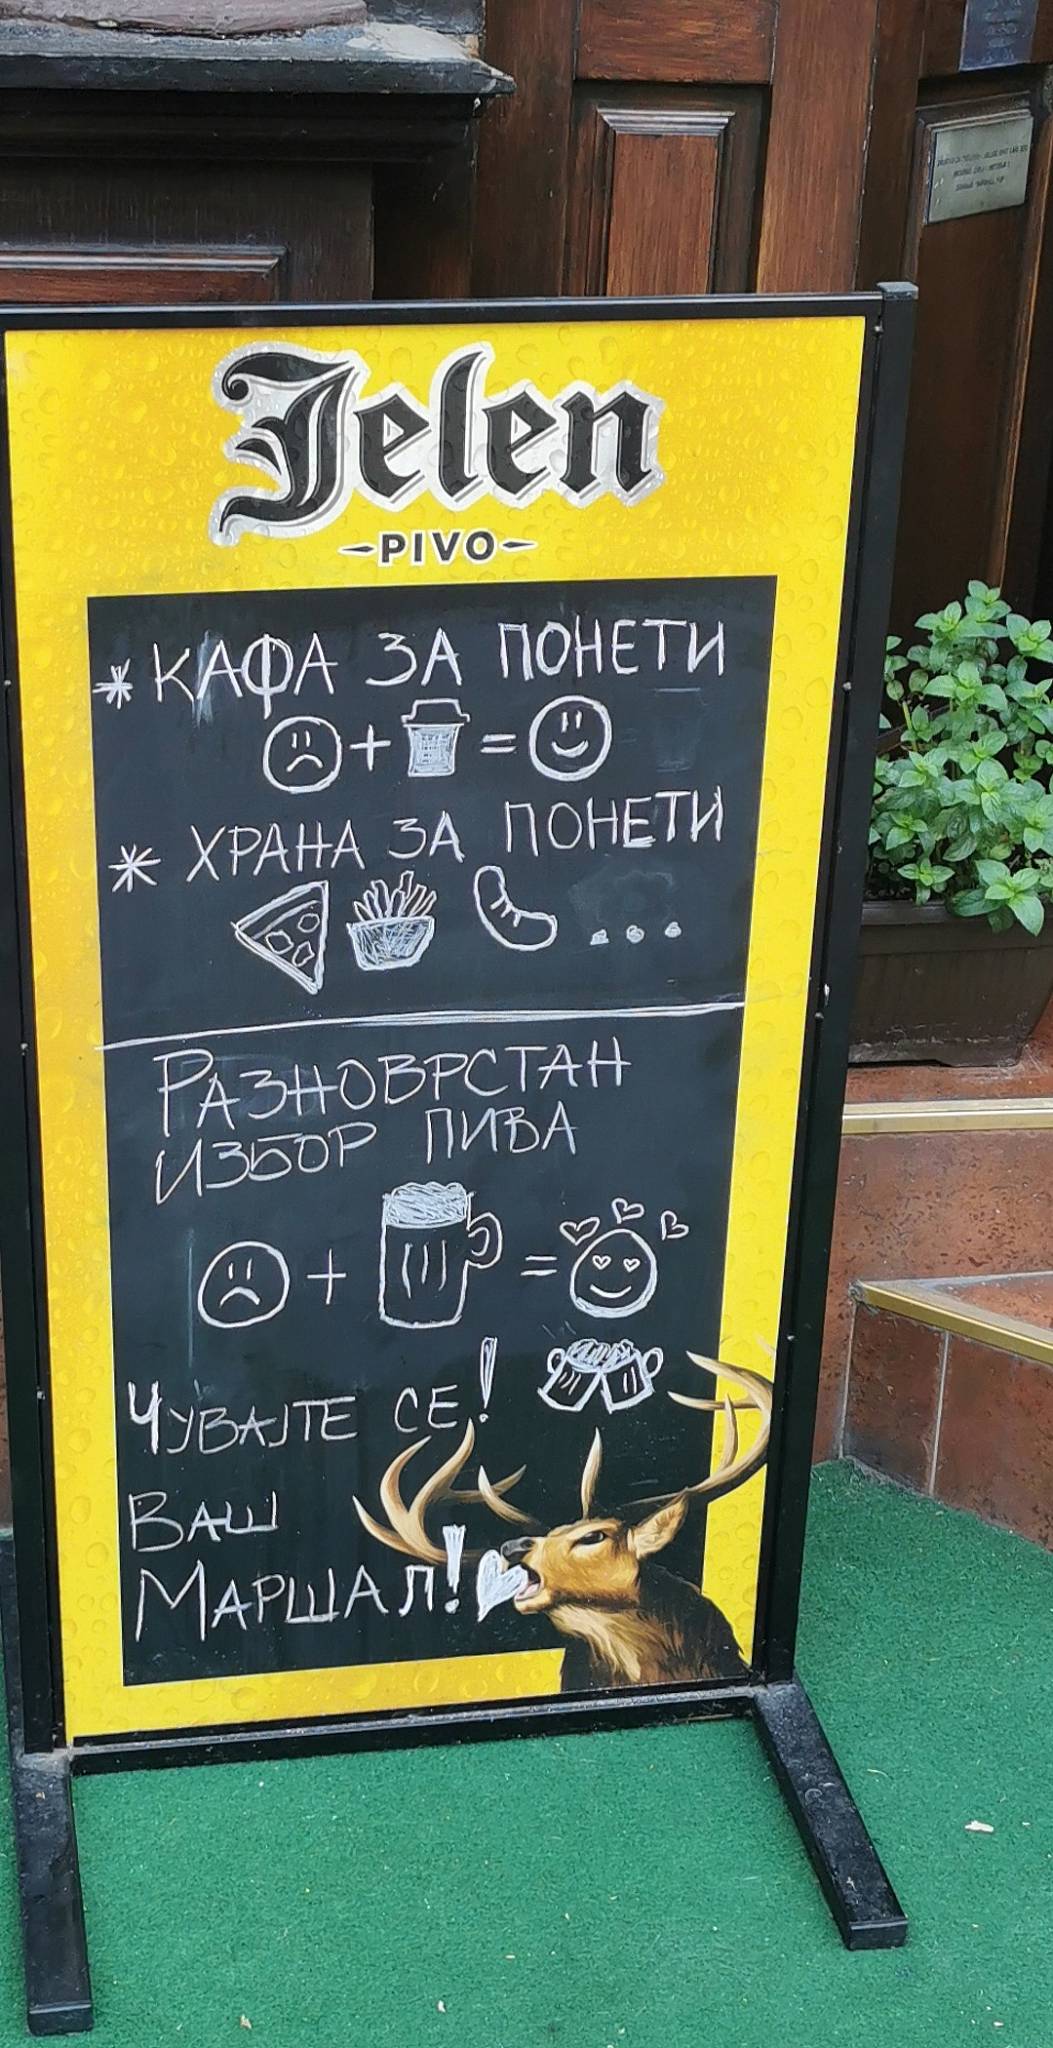 Jelen
-PIVO-
* КАФА ЗА ПОНЕТИ
+ =
* ХРАНА ЗА ПОНЕТИ
...
РАЗНОВРСТАН
ИЗБОР ПИВА
+ =
ЧУВАЈТЕ СЕ!
ВАШ
МАРШАЛ!